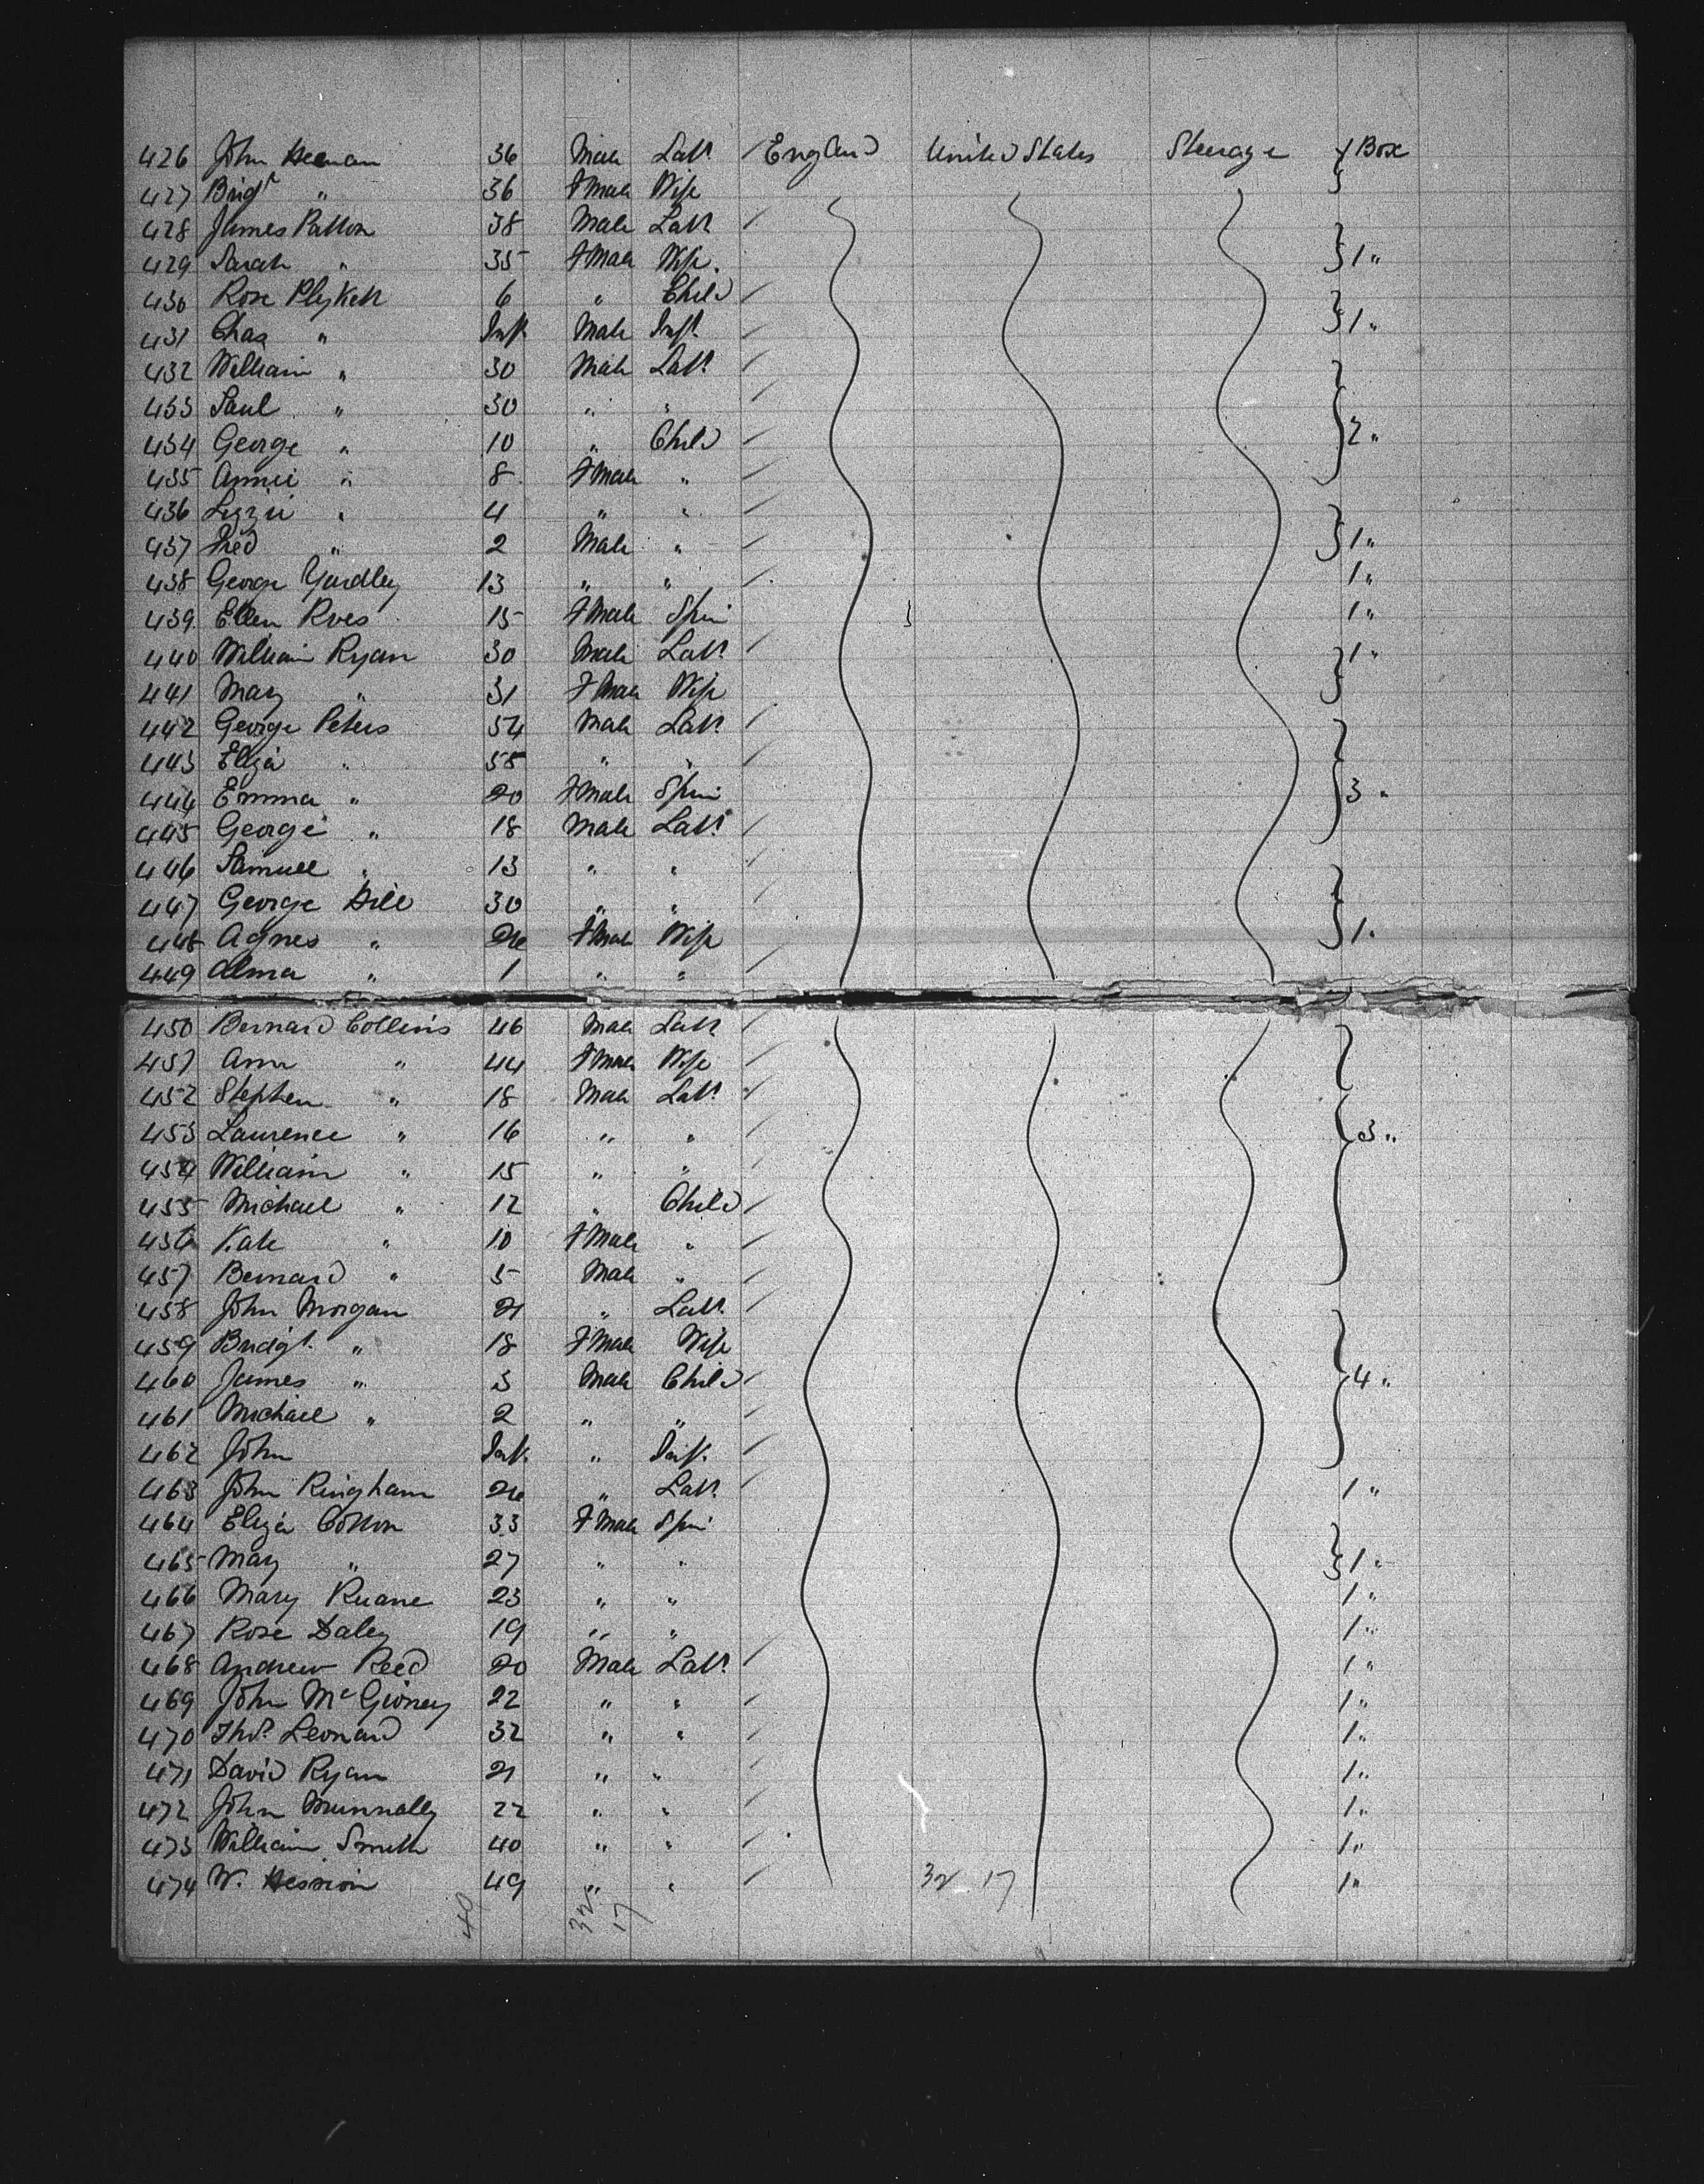 426 John Heenan 36 Male Labr England United States Steerage 1 Box
427 Brigt " 36 Fmale Wife
428 James Patton 38 Male Labr
429 Sarah " 35 Fmale Wife 1 "
430 Rose Plykett 6 " Child
431 Chas " Inft Male Inft 1 "
432 William " 30 Male Labr
433 Saul " 30 " "
434 George " 10 " Child 2 "
435 Annie " 8 Fmale "
436 Lizzie " 4 " "
437 Fred " 2 Male " 1 "
438 George Yardley 13 " " 1 "
439 Ellen Rves 15 Fmale Spin 1 "
440 William Ryan 30 Male Labr 1 "
441 Mary " 31 Fmale Wife
442 George Peters 54 Male Labr
443 Eliza " 55 " "
444 Emma " 20 Fmale Spin 3 "
445 George " 18 Male Labr
446 Samuel " 13 " "
447 George Hill 30 " "
448 Agnes " 26 Fmale Wife 1 "
449 Alma " 1 " "
450 Bernard Collins 46 Male Labr
451 Ann " 44 Fmale Wife
452 Stephen " 18 Male Labr
453 Laurence " 16 " " 3 "
454 William " 15 " "
455 Michael " 12 " Child
456 Kate " 10 Fmale "
457 Bernard " 5 Male "
458 John Morgan 21 " Labr
459 Bridgt. " 18 Fmale Wife
460 James " 3 Male Child 4 "
461 Michael " 2 " "
462 John Inft. " Inft.
463 John Ringham 26 " Labr 1 "
464 Eliza Cotton 33 Fmale Spin
465 Mary " 27 " " 1 "
466 Mary Ruane 23 " " 1 "
467 Rose Daley 19 " " 1 "
468 Andrew Reed 20 Male Labr 1 "
469 John McGivney 22 " " 1 "
470 Thos. Leonard 32 " " 1 "
471 David Ryan 21 " " 1 "
472 John Munnally 22 " " 1 "
473 William Smith 40 " " 1 "
474 W. Hession 49 " " 32 17 1 "
40 32 17